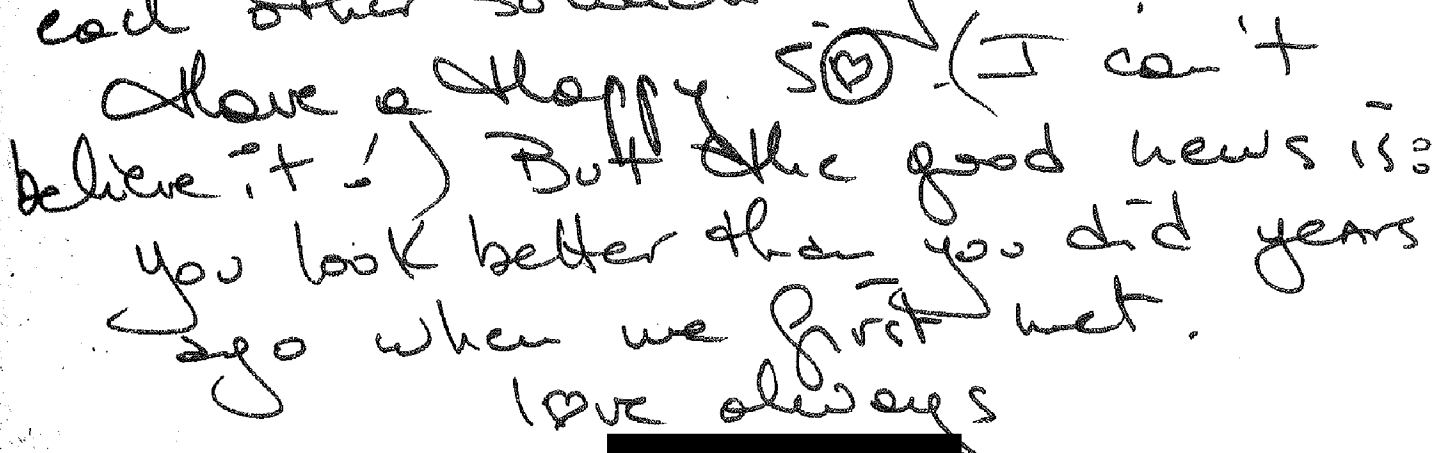 each other
Have a Happy 50 . (I can't
believe it!) But the good news is:
you look better than you did years
ago when we first met.
love always